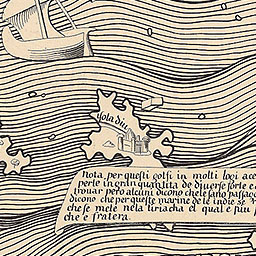 Isola di
Nota per questi golfi in molti logi ace
perle in gran quantita de diuerse sorte e
trouar pero alcuni dicono che le sano passag
dicono che per queste marine de le indie se
che se mete nela tiriacha el qual e piu
che e fratera.